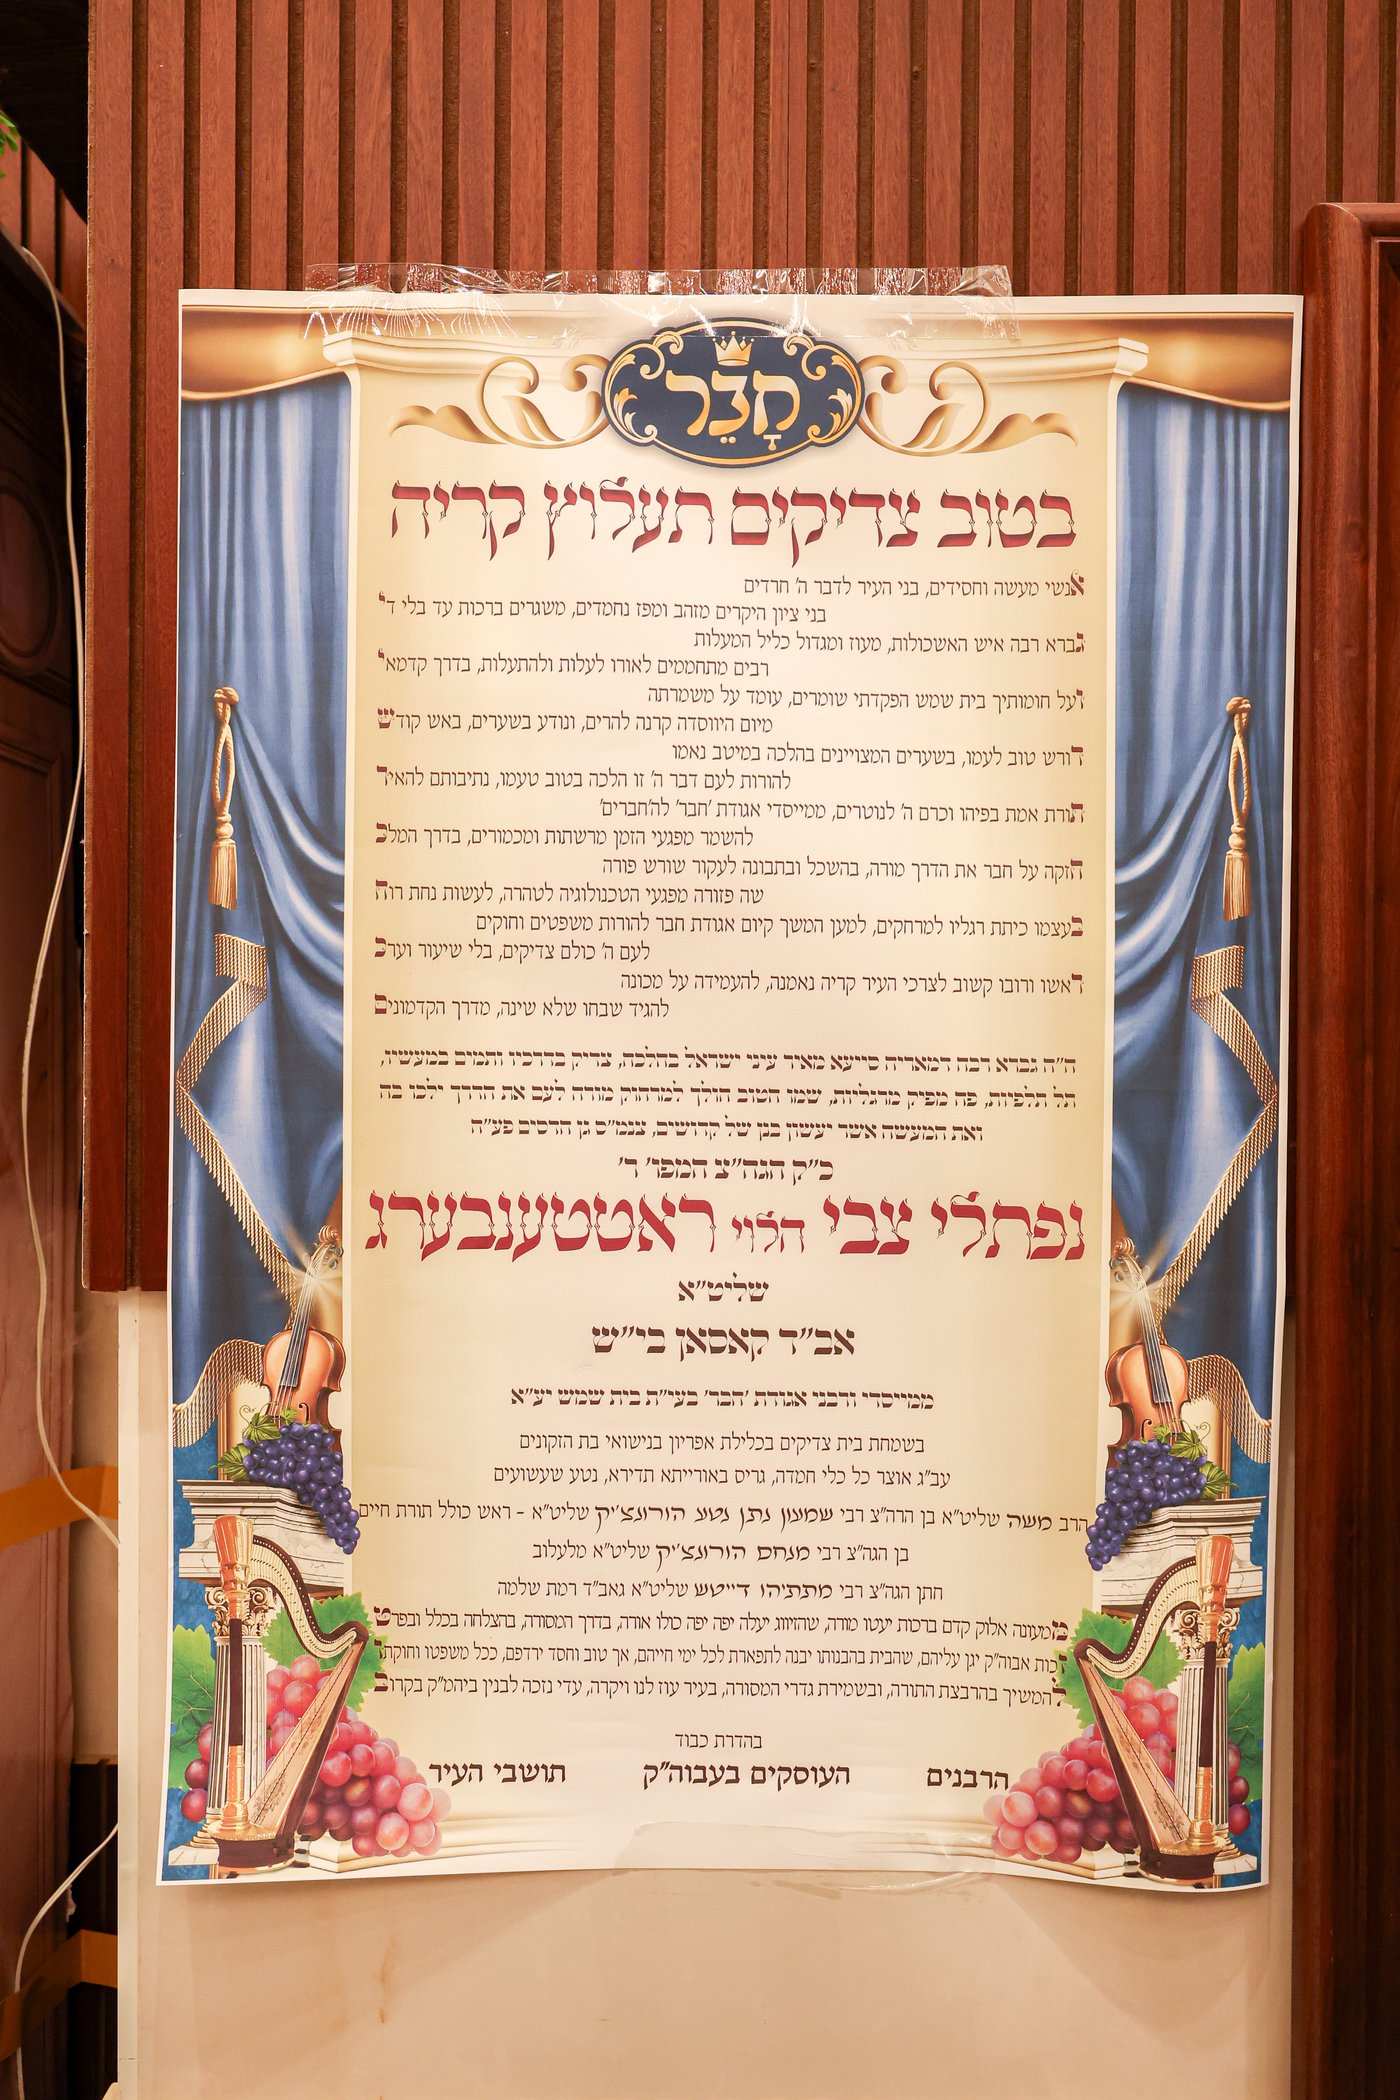 חָבֵר
בטוב צדיקים תעלוץ קריה
אנשי מעשה וחסידים, בני העיר לדבר ה' חרדים
בני ציון היקרים מזהב ומפז נחמדים, משגרים ברכות עד בלי די
גברא רבה איש האשכולות, מעוז ומגדול כליל המעלות
רבים מתחממים לאורו לעלות ולהתעלות, בדרך קדמאי
ועל חומותיך בית שמש הפקדתי שומרים, עומד על משמרתה
מיום היווסדה קרנה להרים, ונודע בשערים, באש קודש
דורש טוב לעמו, בשערים המצויינים בהלכה במיטב נאמו
להורות לעם דבר ה' זו הלכה בטוב טעמו, נתיבותם להאיר
תורת אמת בפיהו וכרם ה' לנוטרים, ממייסדי אגודת 'חבר' לה'חברים'
להשמר מפגעי הזמן מרשתות ומכמורים, בדרך המלך
חזקה על חבר את הדרך מורה, בהשכל ובתבונה לעקור שורש פורה
שה פזורה מפגעי הטכנולוגיה לטהרה, לעשות נחת רוח
בעצמו כיתת רגליו למרחקים, למען המשך קיום אגודת חבר להורות משפטים וחוקים
לעם ה' כולם צדיקים, בלי שיעור וערך
ראשו ורובו קשוב לצרכי העיר קריה נאמנה, להעמידה על מכונה
להגיד שבחו שלא שינה, מדרך הקדמונים
ה"ה גברא רבה דמאריה סייעא מאיר עיני ישראל בהלכה, צדיק בדרכיו ותמים במעשיו,
תל תלפיות, פה מפיק מרגליות, שמו הטוב הולך למרחוק מורה לעם את הדרך ילכו בה
ואת המעשה אשר יעשון בנן של קדושים, צנמ"ס גן הדסים פע"ה
כ"ק הגה"צ המפו' ר'
נפתלי צבי הלוי ראטטענבערג
שליט"א
אב"ד קאסאן בי"ש
ממייסדי ודבני אגודת 'חבר' בעי"ת בית שמש יע"א
בשמחת בית צדיקים בכלילת אפריון בנישואי בת הזקונים
עב"ג אוצר כל כלי חמדה, גריס באורייתא תדירא, נטע שעשועים
הרב משה שליט"א בן הרה"צ רבי שמעון נתן נטע הורונצ'יק שליט"א - ראש כולל תורת חיים
בן הגה"צ רבי מנחם הורונצ'יק שליט"א מלעלוב
חתן הגה"צ רבי מתתיהו דייטש שליט"א גאב"ד רמת שלמה
ממעונה אלוק קדם ברכות יעטו מורה, שהזיווג יעלה יפה יפה כולו אורה, בדרך המסורה, בהצלחה בכלל ובפרט
זכות אבוה"ק יגן עליהם, שהבית בהבנותו יבנה לתפארת לכל ימי חייהם, אך טוב וחסד ירדפם, ככל משפטו וחוקתו
להמשיך בהרבצת התורה, ובשמירת גדרי המסורה, בעיר עוז לנו ויקרה, עדי נזכה לבנין ביהמ"ק בקרוב
בהדרת כבוד
הרבנים העוסקים בעבוה"ק תושבי העיר